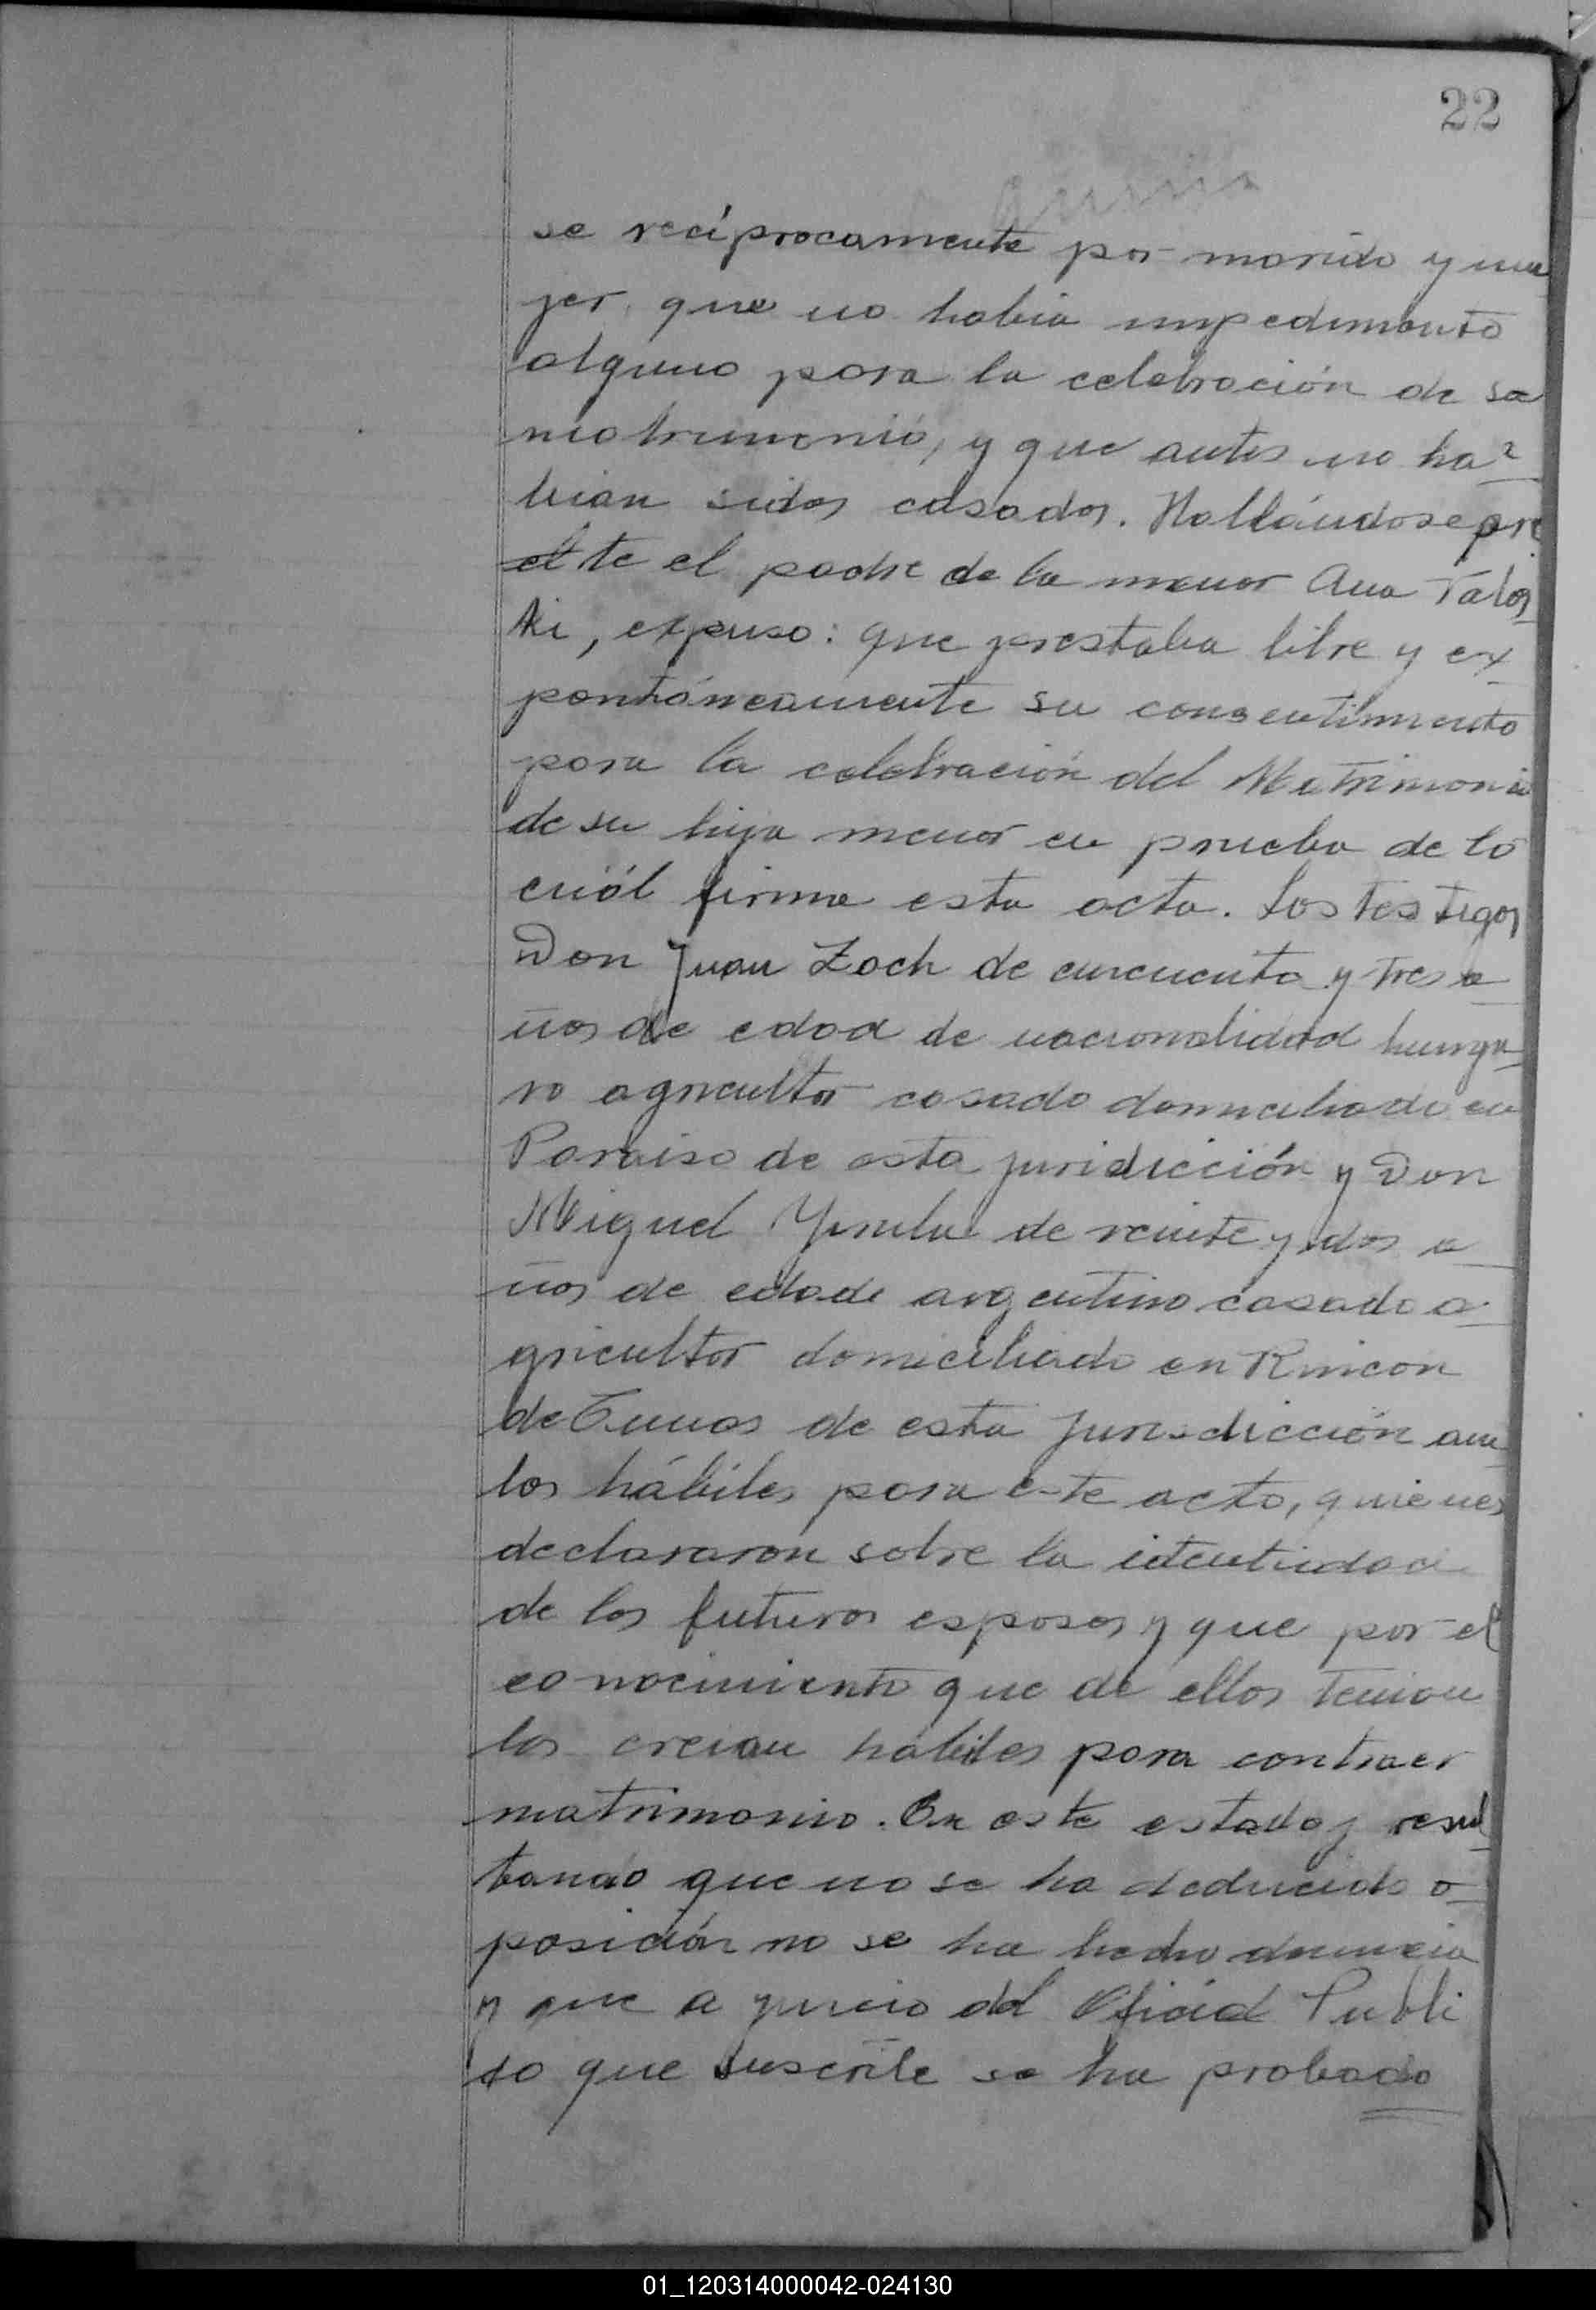 22
se recíprocamente por marido y mu
jer, que no habia impedimento
alguno para la celebración de sa
matrimonio, y que antes no ha
bian sidos casados. Hallándose pre
te el padre de la menor Ana Talos
ki, expuso: que prestaba libre y ex
pontáneamente su consentimiento
para la celebración del Matrimonio
de su hija menor en prueba de lo
cuál firma esta acta. Los testigos
Don Juan Zoch de cincuenta y tres a
ños de edad de nacionalidad hunga
ro agricultor casado domiciliado en
Paraiso de esta juridicción y Don
Miguel de veinte y dos a
ños de edade argentino casado a
gricultor domiciliado en Rincon
de Tunas de esta Jurisdicción am
bos hábiles para este acto, quienes
declararon sobre la identidad
de los futuros esposos y que por el
conocimiento que de ellos tenian
los creian hábiles para contraer
matrimonio. En este estado y resul
tando que no se ha deducido o
posición no se ha hecho denuncia
y que a juicio del Oficial Publi
co que suscribe se ha probado
01_120314000042-024130